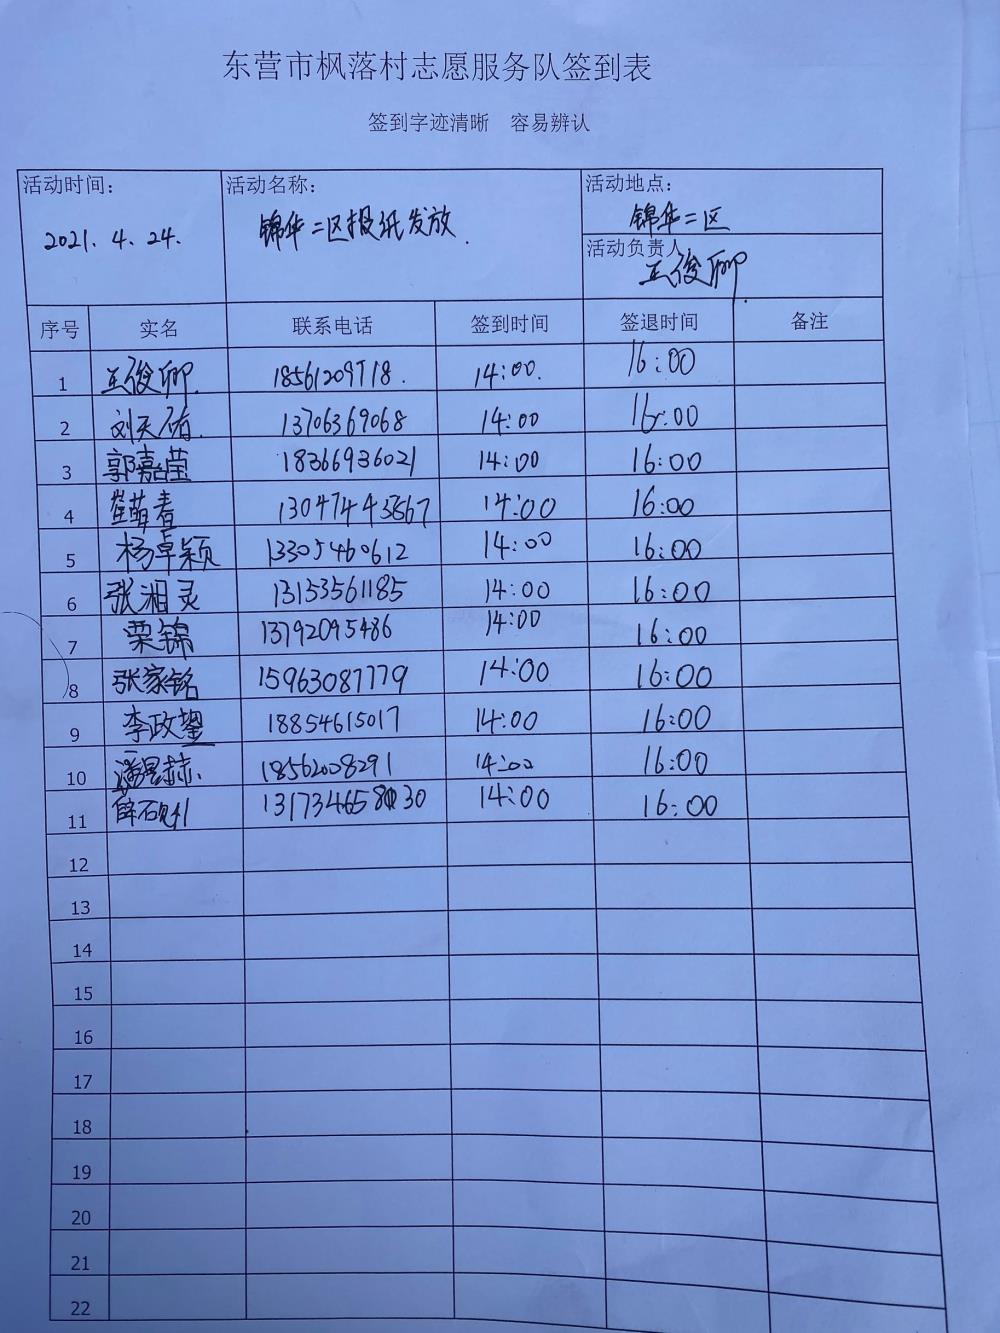 东营市枫落村志愿服务队签到表
签到字迹清晰 容易辨认
活动时间: 活动名称: 活动地点:
2021.4.24. 锦华二区报纸发放. 锦华二区
活动负责人
王俊卿
序号 实名 联系电话 签到时间 签退时间 备注
1 王俊卿. 18561209718. 14:00. 16:00
2 刘天佑. 13706369068 14:00 16:00
3 郭嘉莹 18366936021 14:00 16:00
4 崔萌春 14:00 16:00
5 杨卓颖 13305460612 14:00 16:00
6 张湘灵 13153561185 14:00 16:00
7 栗锦 13792095486 14:00 16:00
8 张家铭 15963087779 14:00 16:00
9 李政 18854615017 14:00 16:00
10 18562008291 14:00 16:00
11 14:00 16:00
12
13
14
15
16
17
18
19
20
21
22